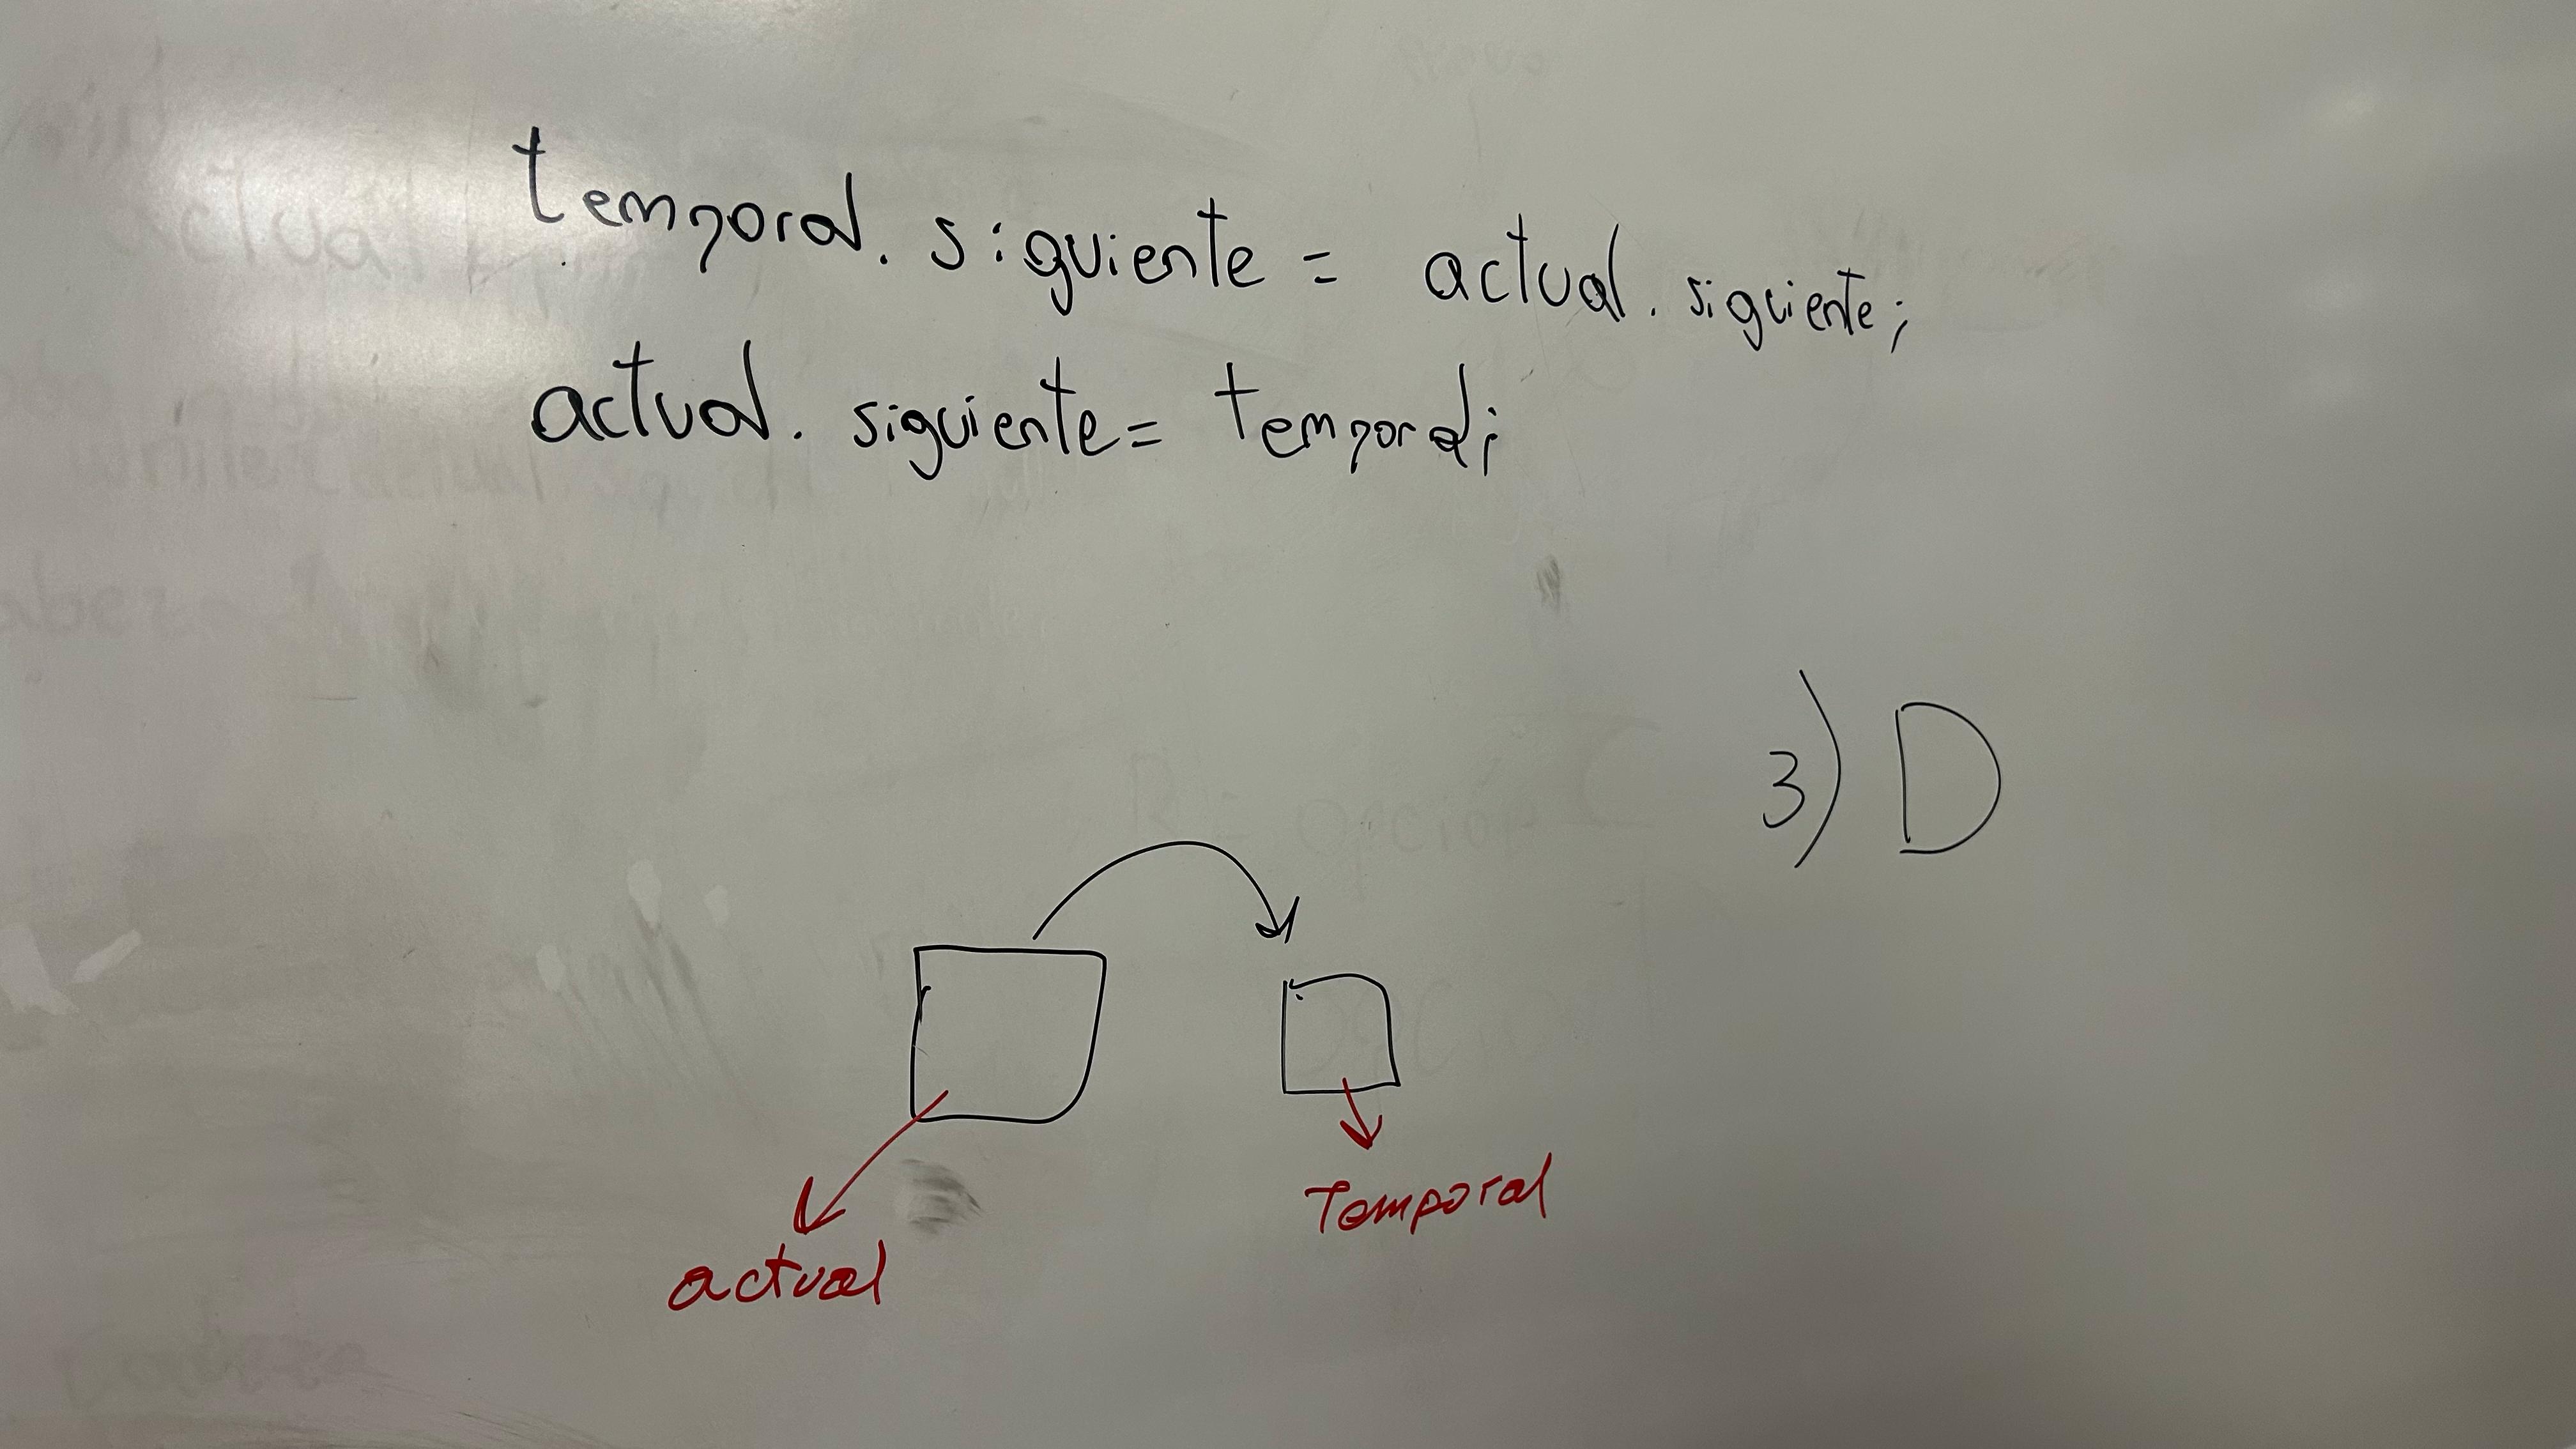 temporal. siguiente = actual. siguiente;
actual. siguiente = temporal;
3) D
Temporal
actual